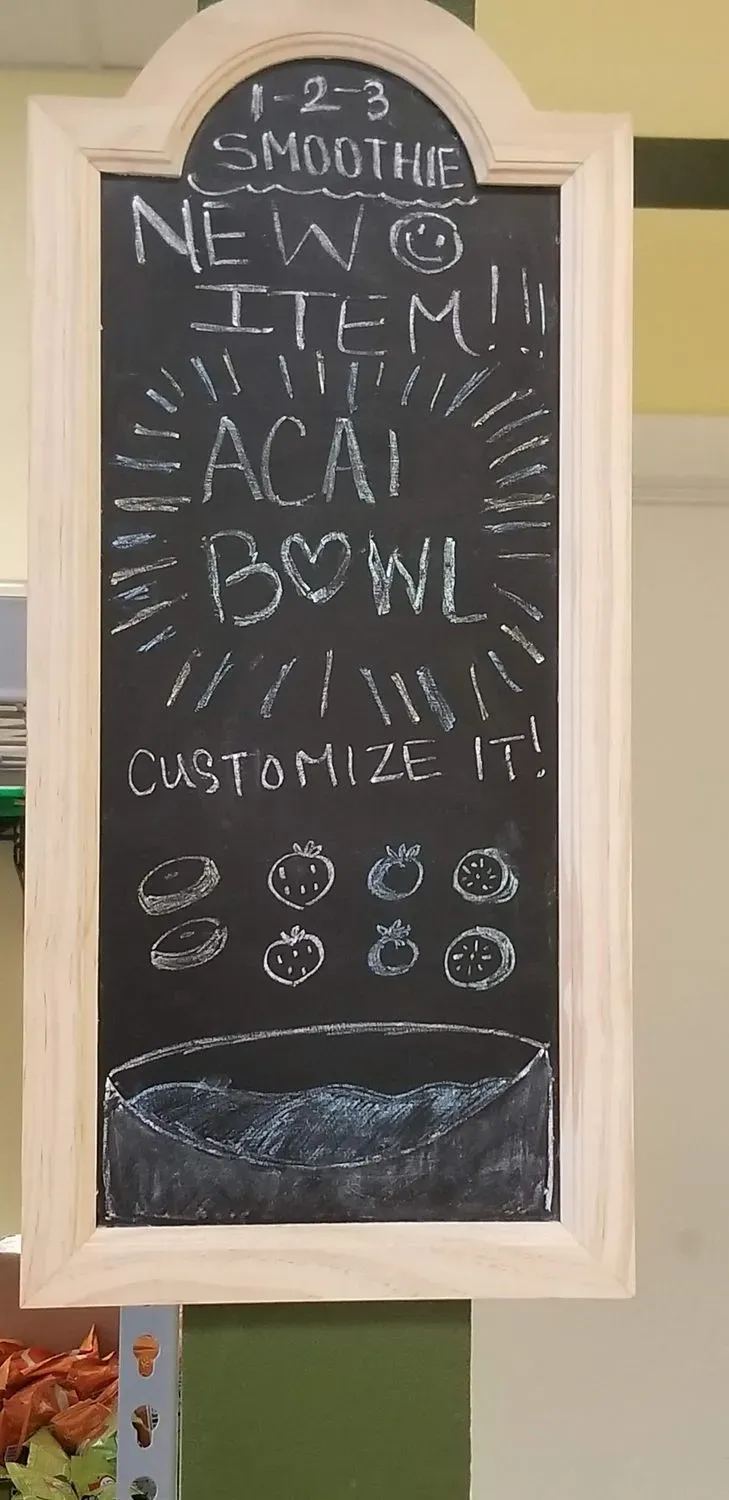 1-2-3
SMOOTHIE
NEW
ITEM!!!
ACAI
BOWL
CUSTOMIZE IT!